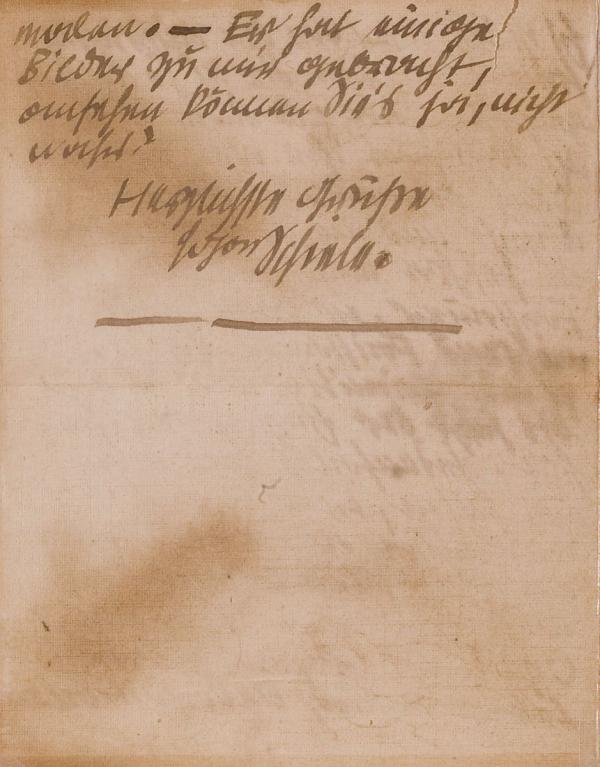 malen. — Er hat einige
Bilder zu mir gebracht,
ansehen können Sie's ja, nicht
wahr?
Herzlichste Grüße
Egon Schiele.